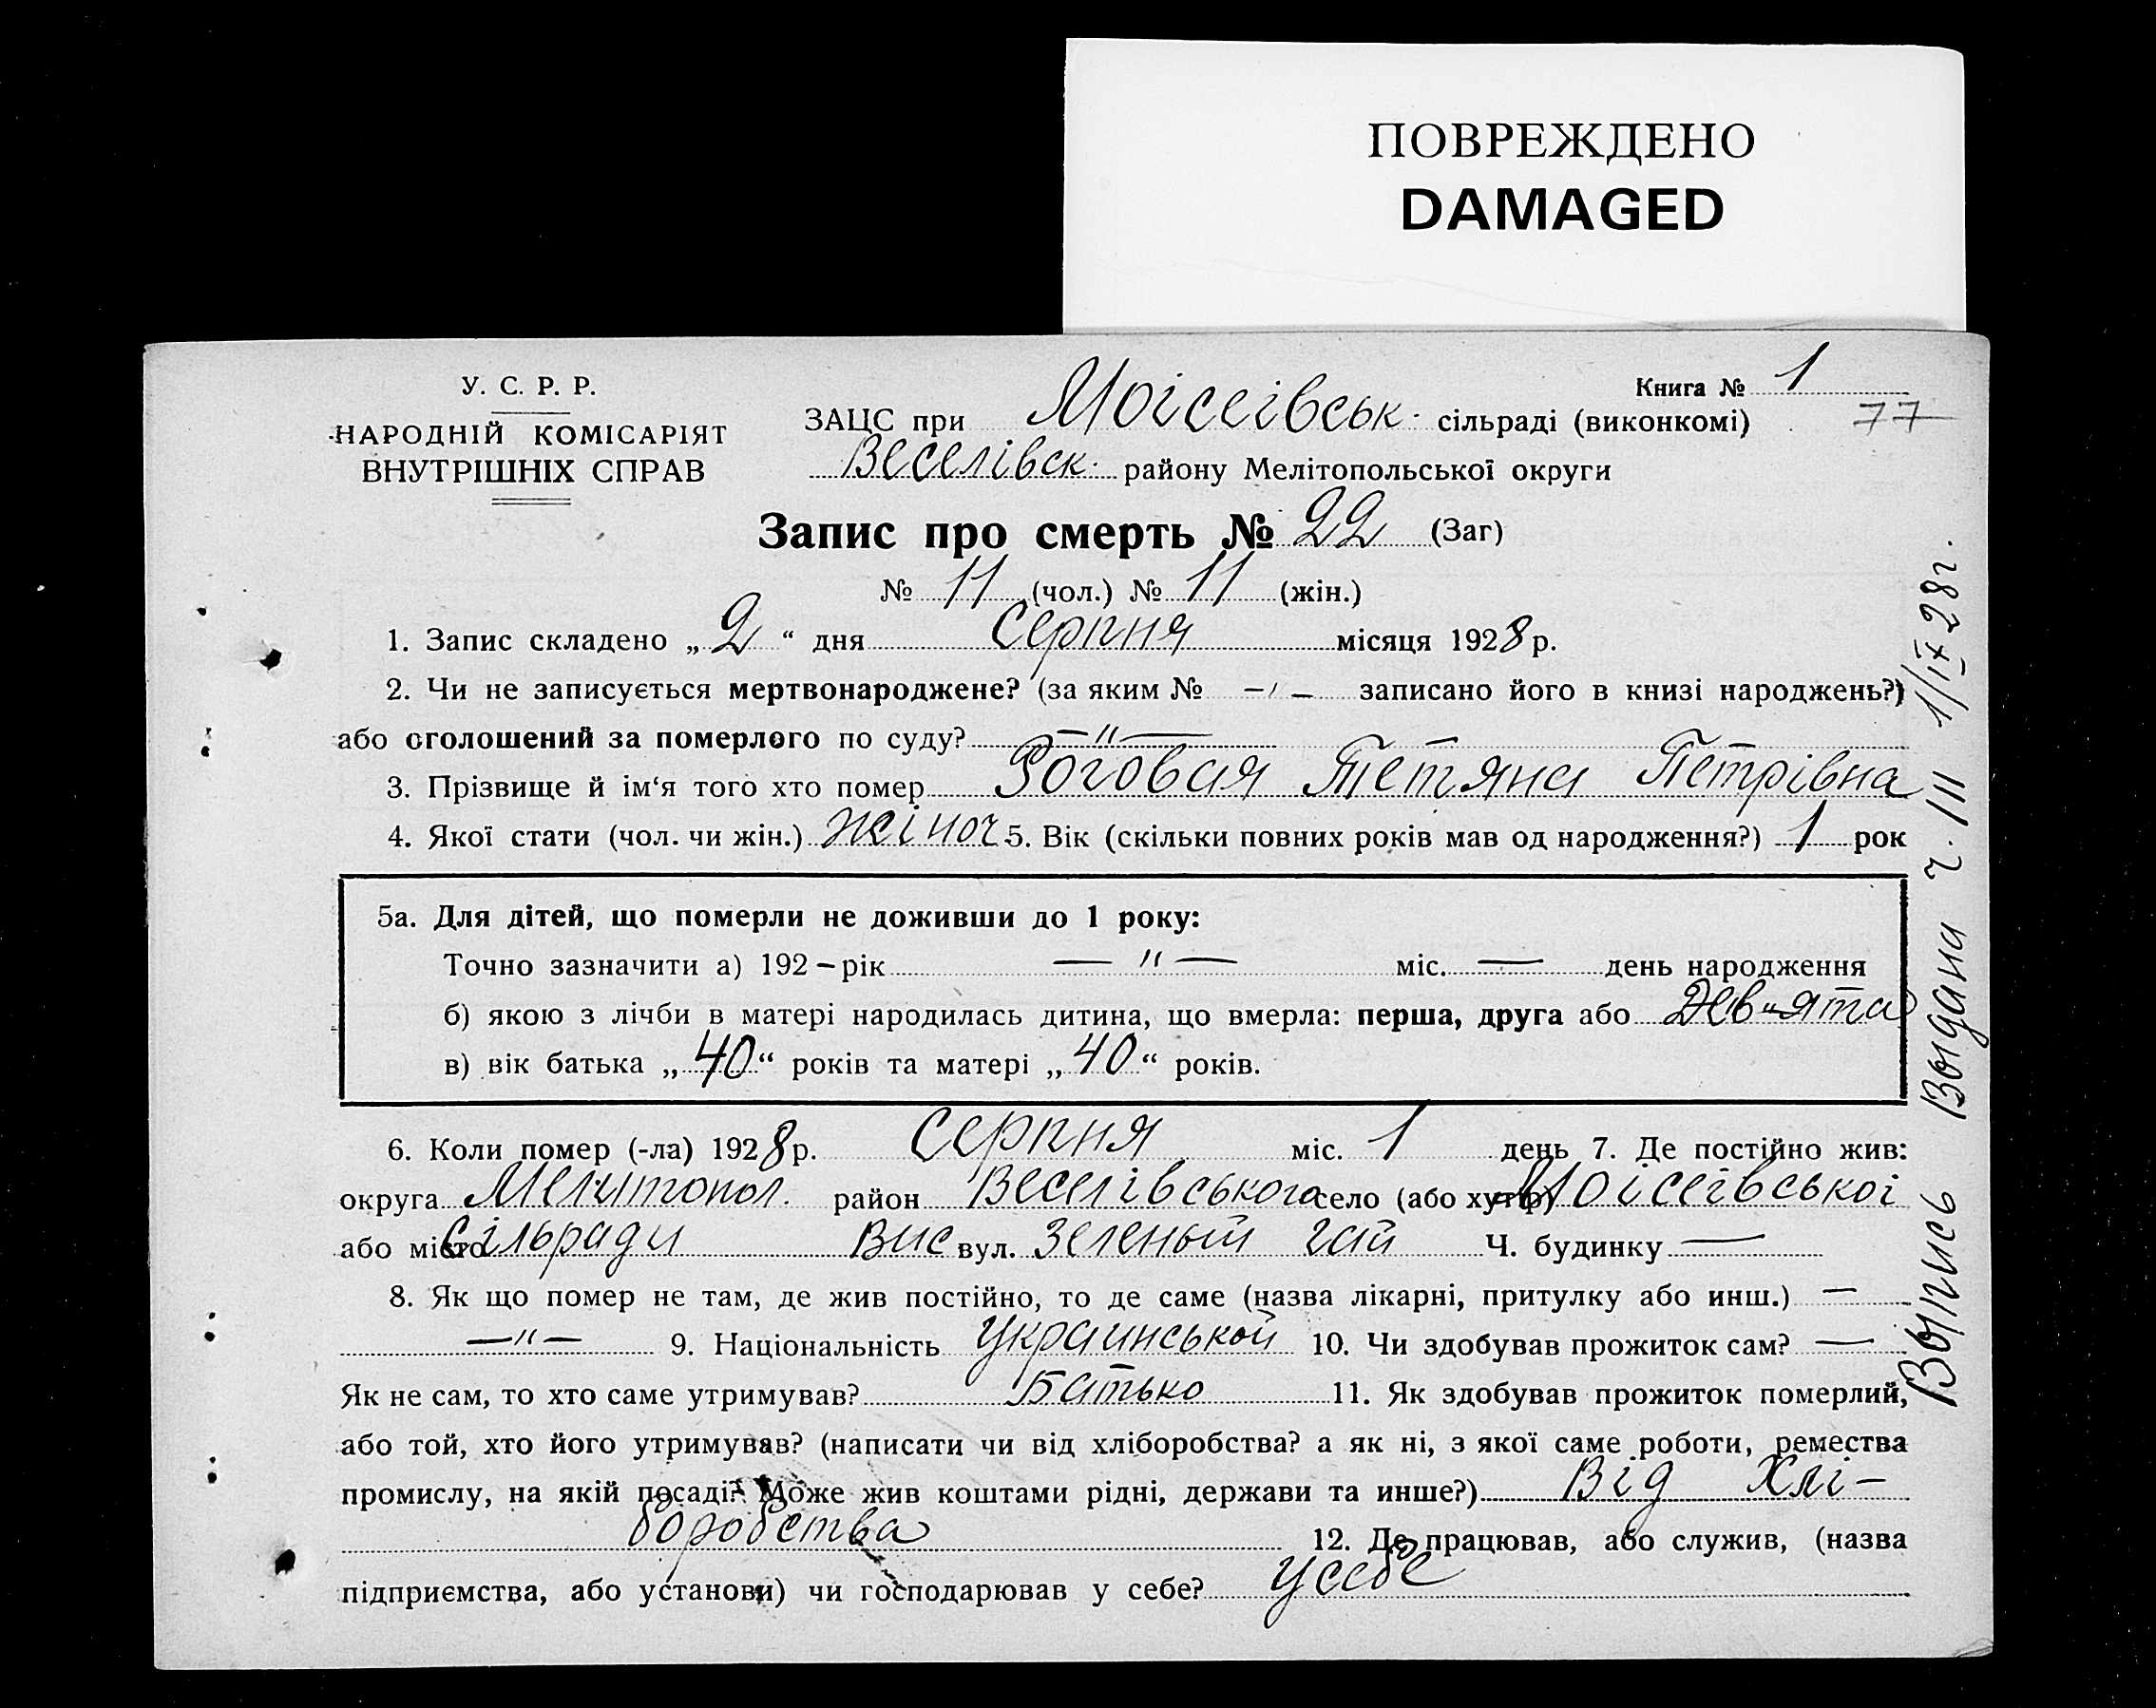 ПОВРЕЖДЕНО
DAMAGED
У. С. Р. Р.
НАРОДНІЙ КОМІСАРІЯТ
ВНУТРІШНІХ СПРАВ
Книга № 1
77
ЗАЦС при Моісеівськ. сільраді (виконкомі)
Веселівск. району Мелітопольської округи
Запис про смерть № 22 (Заг)
№ 11 (чол.) № 11 (жін.)
1. Запис складено „ 2 “ дня Серпня місяця 1928 р.
2. Чи не записується мертвонароджене? (за яким № — ׀ — записано його в книзі народжень?)
або оголошений за померлого по суду? — " —
3. Прізвище й ім‘я того хто помер Роговая Тетяна Петрівна
4. Якої стати (чол. чи жін.) жіноч 5. Вік (скільки повних років мав од народження?) 1 рок
5а. Для дітей, що померли не доживши до 1 року:
Точно зазначити а) 192 – рік — " — міс. — день народження
б) якою з лічби в матері народилась дитина, що вмерла: перша, друга або Дев"ята
в) вік батька „ 40 “ років та матері „ 40 “ років.
6. Коли помер (-ла) 1928 р. Серпня міс. 1 день 7. Де постійно жив:
округа Мелитопол. район Веселівського село (або хутір) Моісеівськоі
або місто сільради Вис вул. Зеленый гай Ч. будинку —
8. Як що помер не там, де жив постійно, то де саме (назва лікарні, притулку або инш.) —
— " — 9. Національність Украинськой 10. Чи здобував прожиток сам? —
Як не сам, то хто саме утримував? Батько 11. Як здобував прожиток померлий,
або той, хто його утримував? (написати чи від хліборобства? а як ні, з якої саме роботи, ремества
промислу, на якій посаді? Може жив коштами рідні, держави та инше?) Від Хлі-
боробства 12. Де працював, або служив, (назва
підприємства, або установи) чи господарював у себе? У себе
Выпись выдана ч. 111 1/IX 28 г.